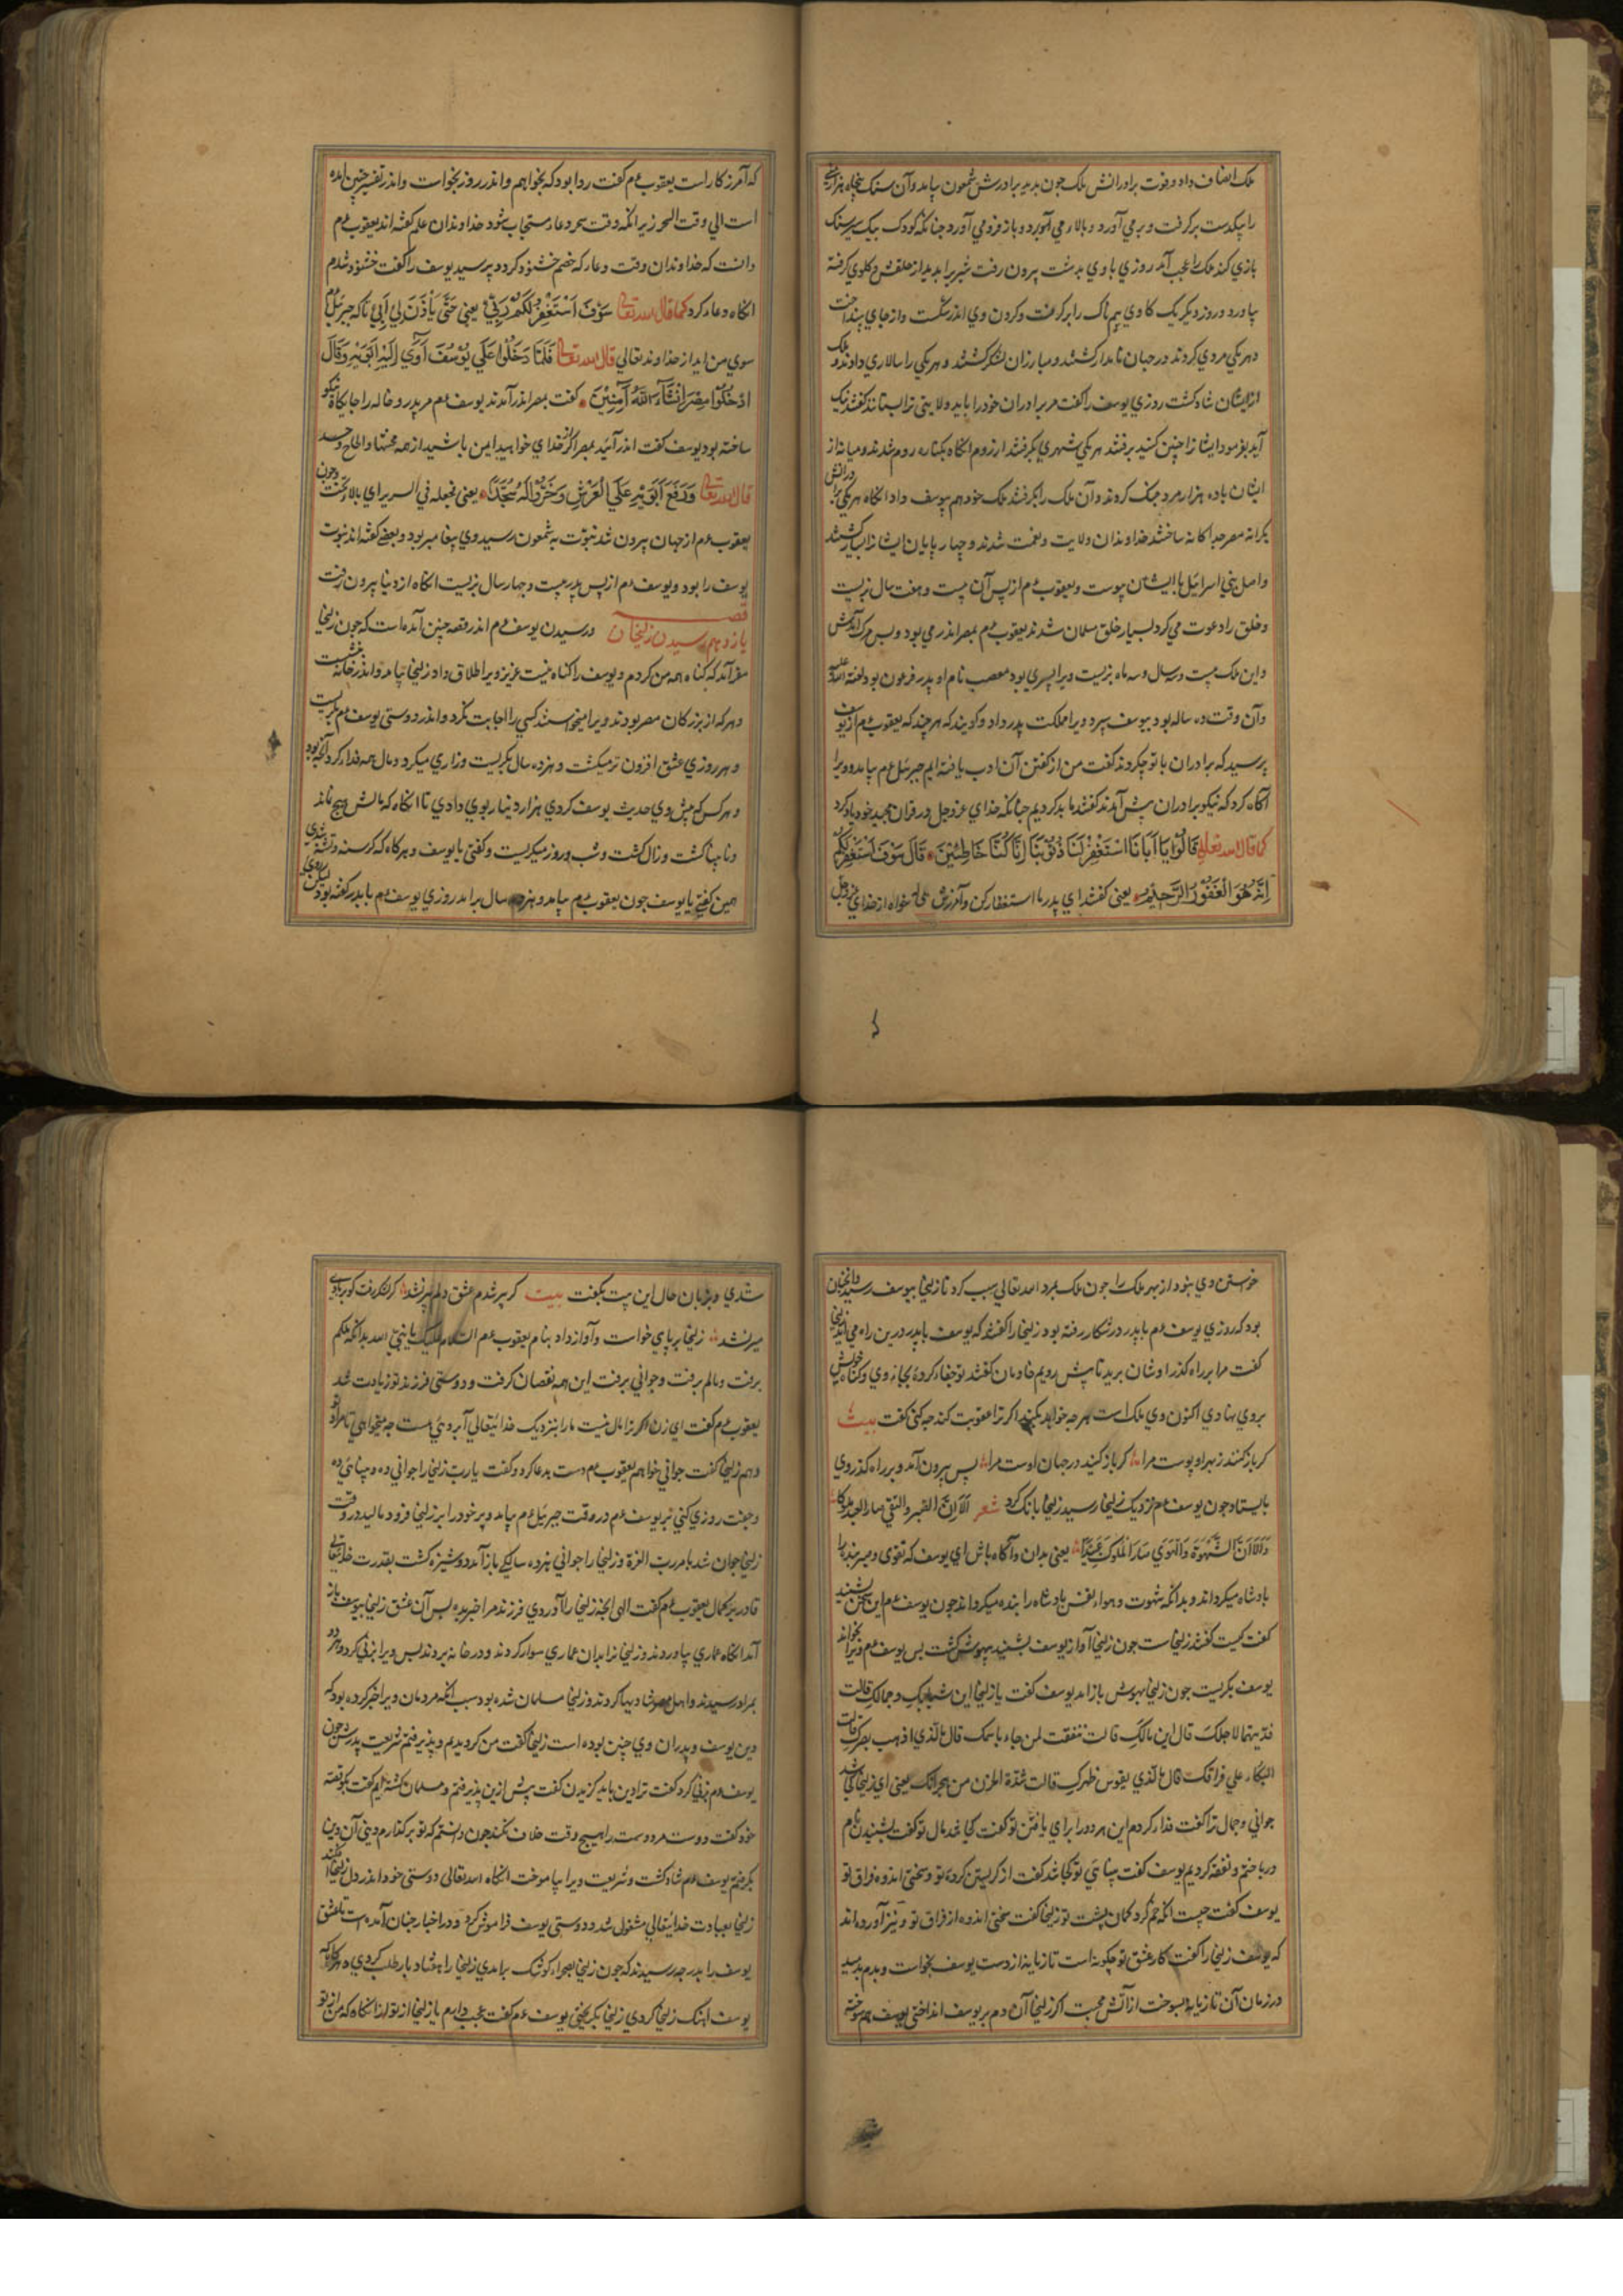 ملک انصاف داد و قوت برادرانش ملک چون بدید برادرش شمعون بیامد و آن سنک پنجاه هزار منی
را بیکدست برکرفت و برمی آورد و بالا می آورد و باز فرو می آورد چنانکه کودک بیک سیر سنک
بازی کند ملک را عجب آمد روزی با وی بدشت بیرون رفت شیر را بدید از حلقش و کلوی کرفته
بیاورد و روز دیکر یک کاوی سهمناک را برکرفت و کردن وی اندر شکست و از جای بینداخت
و هر یکی مردی کردند در جهان نامدار کشتند و مبارزان لشکر کشتند و هر یکی را سالاری دادند و ملک
از ایشان شاد کشت روزی یوسف را کفت مر برادران خود را باید ولایتی ترا بستانند کفتند نیک
آید بفرمود ایشانرا چنین کنید برفتند هر یکی شهری بکرفتند از روم آنکاه بکناره روم شدند و میانه از
ایشان باده هزار مرد جنک کردند و آن ملک را بکرفتند ملک خود هم بیوسف داد آنکاه هر یکی را در آتش
بکرانه مصر جداکانه ساختند خداوندان ولایت و نعمت شدند و چهارپایان ایشانرا بسیار کشتند
و اصل بنی اسرائیل با ایشان پیوست و یعقوب عم از پس آن بیست و هفت سال بزیست
و خلق را دعوت می کرد بسیار خلق مسلمان شدند یعقوب عم بمصر اندر می بود و بس مرک آمدش
و این ملک بیست و سه سال و سه ماه بزیست ویرا پسری بود مصعب نام او پدر فرعون بود لعنه الله علیه
و آن وقت ده ساله بود بیوسف سپرد ویرا مملکت پدر داد و کویند که هر چند که یعقوب عم از یوسف
پرسید که برادران با تو چکردند کفت من از کفتن آن ادب یافته ایم جبرئیل عم بیامد و ویرا
آکاه کرد که نیکو برادران پیش آمدند کفتند ما بد کردیم چنانکه خدای عز و جل در قران مجید خود یاد کرد
کما قال الله تعالی قَالُوا یَا اَبَانَا اسْتَغْفِرْ لَنَا ذُنُوبَنَا اِنَّا کُنَّا خَاطِئِینَ قَالَ سَوْفَ اَسْتَغْفِرُ لَکُمْ
اِنَّهُ هُوَ الْغَفُورُ الرَّحِیمُ یعنی کفتند ای پدر ما استغفار کن و آمرزش می خواه از خدای عز و جل
که آمرزکار است یعقوب عم کفت روا بود که بخواهم و اندر روز بخواست و اندر تفسیر چنین آمده
است الی وقت السحر زیرا که وقت سحر دعا مستجاب شود خداوندان علم کفته اند یعقوب عم
دانست که خداوندان وقت دعا که خصم خشنود کردد پرسید یوسف را کفت خشنود شدم
آنکاه دعا کرد کما قال الله تعالی سَوْفَ اَسْتَغْفِرُ لَکُمْ رَبِّی یعنی حَتَّی یَاْذَنَ لِی اَبِی تا که جبرئیل
سوی من اید از خداوند تعالی قال الله تعالی فَلَمَّا دَخَلُوا عَلَی یُوسُفَ آوَی اِلَیْهِ اَبَوَیْهِ وَقَالَ
ادْخُلُوا مِصْرَ اِنْ شَآءَ اللّٰهُ آمِنِینَ کفت بمصر اندر آمدند یوسف عم مر پدر و خاله را جایکاه نیکو
ساخته بود یوسف کفت اندر آئید بمصر اکر خدای خواهد ایمن باشید از همه محنتها و الحاح و حسد
قال الله تعالی وَرَفَعَ اَبَوَیْهِ عَلَی الْعَرْشِ وَخَرُّوا لَهُ سُجَّدًا یعنی فجعله فی السریر ای بالا تخت و چون
یعقوب عم از جهان بیرون شد نبوت به شمعون رسید وی پیغامبر بود و بعضی کفته اند نبوت
یوسف را بود و یوسف عم از پس پدر بیست و چهار سال بزیست آنکاه از دنیا بیرون رفت
قصه
یازدهم رسیدن زلیخا آن در رسیدن یوسف عم اندر قصه چنین آمده است که چون زلیخا
مقر آمد که کناه همه من کردم و یوسف را کناه نیست عزیز ویرا طلاق داد زلیخا بیامد و اندر خانه بنشست
و هر که از بزرکان مصر بودند ویرا میخواستند کسی را اجابت نکرد و اندر دوستی یوسف عم بکریست
و هر روزی عشق افزون تر میکشت و هژده سال بکریست و زاری میکرد و مال همه فدا کرد آنچه بود
و هر کس که پیش وی حدیث یوسف کردی هزار دینار بوی دادی تا آنکاه که مالش هیچ نماند
و نابینا کشت و زال کشت و شب و روز میکریست و کفتی یا یوسف و هر کاه که کرسنه و تشنه شدی
همین کفتی یا یوسف چون یعقوب عم بیامد و هژده سال برآمد روزی یوسف عم با پدر کفته بود
خواستن وی بنود از بهر ملک را چون ملک بمرد الله تعالی سبب کرد تا زلیخا بیوسف رسید و آنچنان
بود که روزی یوسف عم با پدر در شکار رفته بود زلیخا را کفتند که یوسف با پدر درین راه می آید زلیخا
کفت مرا بر راه کذر اوشان برید تا پیش رویم خادمان کفتند تو جفا کرده بجای وی و کناه خویش
بروی نهادی اکنون وی ملک است هر چه خواهد بکند اکر ترا عقوبت کند چه کنی کفت بیت
کر باز کنند زهر او پوست مرا کر باز کنید در جهان اوست مرا پس بیرون آمد و بر راه کذر وی
بایستاد چون یوسف عم نزدیک زلیخا رسید زلیخا بانک کرد شعر اَلَا اِنَّ الصبر والتقی صار العبد ملوکا
وَاَلَا اَنَّ الشَّهْوَةَ وَالْهَوَی صَارَ الْمُلُوکَ عَبِیْدًا یعنی بدان و آکاه باش ای یوسف که تقوی و صبر بنده را
پادشاه میکرداند و بدانکه شهوت و هواء نفس پادشاه را بنده میکرداند چون یوسف عم این سخن بشنید
کفت کیست کفتند زلیخاست چون زلیخا آواز یوسف بشنید بیهوش کشت پس یوسف عم ویرا بخواند
یوسف بکریست چون زلیخا بهوش باز آمد یوسف کفت یا زلیخا این شبابک و جمالک قالت
فدیتهما لاجلک قال این مالک قالت نفقت لمن جاء باسمک قال ما الذی اذهب بصرک قالت
البکاء علی فراقک قال ما الذی یقوس ظهرک قالت شدة الحزن من هجرانک یعنی ای زلیخا کجا شد
جوانی و جمال ترا کفت فدا کردم این هر دو را برای یافتن تو کفت کجا شد مال تو کفت بشنیدن نام
درباختم و نفقه کردیم یوسف کفت بینائی تو کجا شد کفت از کریستن کرده تو و سختی اندوه فراق تو
یوسف کفت چیست انکه خم کرد کمان پشت تو زلیخا کفت سختی اندوه از فراق تو و نیز آورده اند
که یوسف زلیخا را کفت کار عشق تو چکونه است تا تازیانه از دست یوسف بخواست و بدم بدمید
در زمان آن تازیانه بسوخت از آتش محبت اکر زلیخا آن دم بر یوسف انداختی یوسف هم سوخته
شدی و بزبان حال این بیت بکفت بیت کر پیر شدم عشق دلم پیر نشد
میر نشد زلیخا بر پای خواست و آواز داد بنام یعقوب عم السلام علیک یا نبی الله بدانکه ملکم
برفت و مالم برفت و جوانی برفت این همه نقصان کرفت و دوستی فرزند تو زیادت شد
یعقوب عم کفت ای زن اکر ترا مال نیست مارا بنزدیک خدایتعالی آبروی هست چه میخواهی تا مراد تو
دهم زلیخا کفت جوانی خواهم یعقوب عم دست بدعا کرد و کفت یارب زلیخا را جوانی ده و بینائی ده
و جفت روزی کنی نیز یوسف عم در وقت جبرئیل عم بیامد و پر خود را بر زلیخا فرود مالید در وقت
زلیخا جوان شد بامر رب العزة و زلیخا را جوانی هژده سالکی باز آمد دوشیزه کشت بقدرت خدایتعالی
قادر بر کمال یعقوب عم کفت الهی آنچه زلیخا را آوردی فرزند مرا خبر بده پس آن عشق زلیخا بیوسف باز
آمد آنکاه عماری بیاوردند و زلیخا را بدان عماری سوار کردند و در خانه بردند پس ویرا بزنی کرد و هر دو
بمراد رسیدند و اهل مصر شادیها کردند و زلیخا مسلمان شده بود سبب انکه مردمان ویرا خبر کرده بود که
دین یوسف و پدران وی چنین بوده است زلیخا کفت من کرویدم و پذیرفتم شریعت پدرش چون
یوسف عم بزنی کرد کفت ترا دین باید کزیدن کفت پیش ازین پذیرفتم و مسلمان کشته ایم کفت بکو قصه
خود کفت دوست مر دوست را هیچ وقت خلاف نکند چون دانستم که تو بر کدام دینی آن دین
بکرفتم یوسف عم شاد کشت و شریعت ویرا بیاموخت آنکاه الله تعالی دوستی خود اندر دل زلیخا افکند
زلیخا بعبادت خدایتعالی مشغول شد و دوستی یوسف فراموش کرد و در اخبار چنان آمده است تا عشق
یوسف را بدرجه رسیدند که چون زلیخا بصحراء کوشک برآمدی زلیخا را هفتاد بار طلب کردی هر کاه که
یوسف آهنک زلیخا کردی زلیخا بکریختی یوسف عم کفت عجب دارم یا زلیخا از تو از آنکاه که من از تو